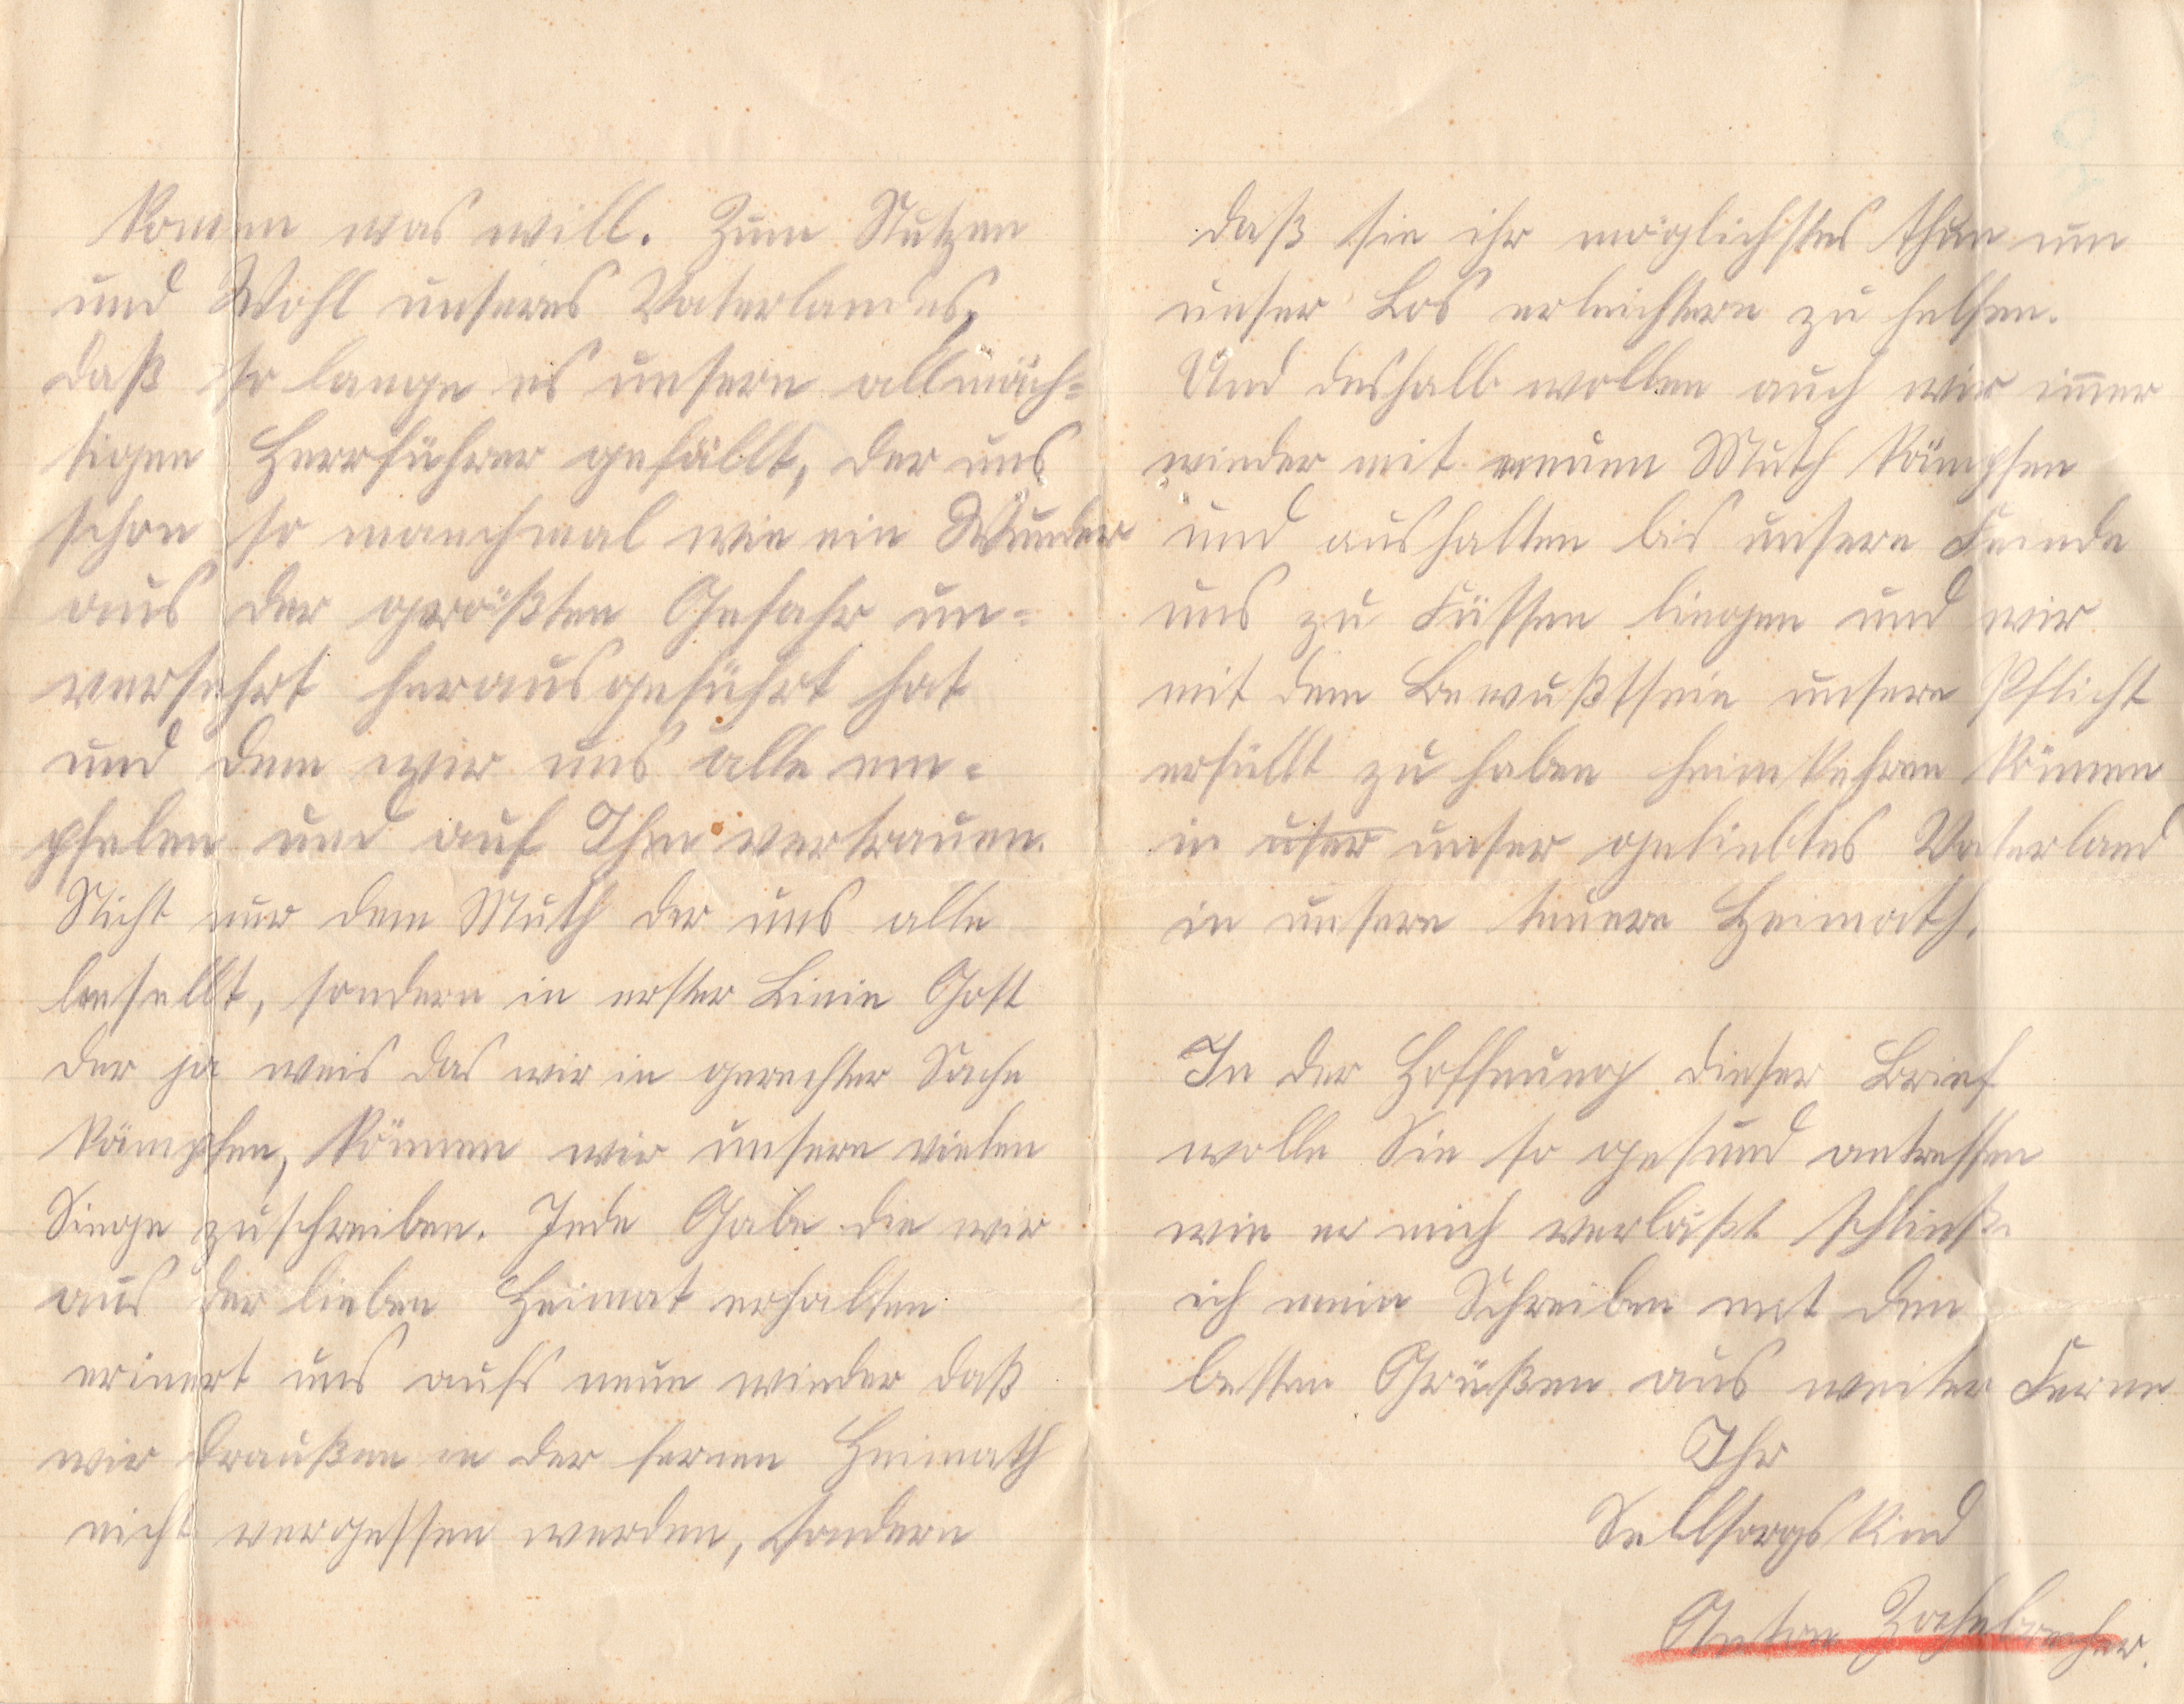 komen was will. Zum Nutzen
und Wohl unseres Vaterlandes,
daß so lange es unsern allmäch=
tigen Herrführer gefällt, der uns
schon so manchmal wie ein Wunder
aus der größten Gefahr un=
versehrt herausgeführt hat
und dem wir uns alle em=
pfelen und auf Ihn vertrauen.
Nicht nur dem Muth der uns alle
besellt, sondern in erster Linie Gott
der ja weis das wir in gerechter Sache
kämpfen, können wir unsere vielen
Siege zuschreiben. Jede Gabe die wir
aus der lieben Heimat erhalten
erinert uns aufs neue wieder daß
wir draußen in der fernen Heimath
nicht vergessen werden, sondern
daß sie ihr möglichstes thun um
unser Los erleichtern zu helfen.
Und deshalb wollen auch wir im̄er
wieder mit neuen Muth kämpfen
und aushalten bis unsere Feinde
uns zu Füssen liegen und wir
mit dem Bewußtsein unsere Pflicht
erfüllt zu haben heimkehren können
in user unser geliebtes Vaterland
in unsere teuere Heimath.
In der Hoffnung dieser Brief
wolle Sie so gesund antreffen
wie er mich verläßt schließe
ich mein Schreiben mit den
besten Grüßen aus weiter Ferne
Ihr
Sellsorgskind
Anton